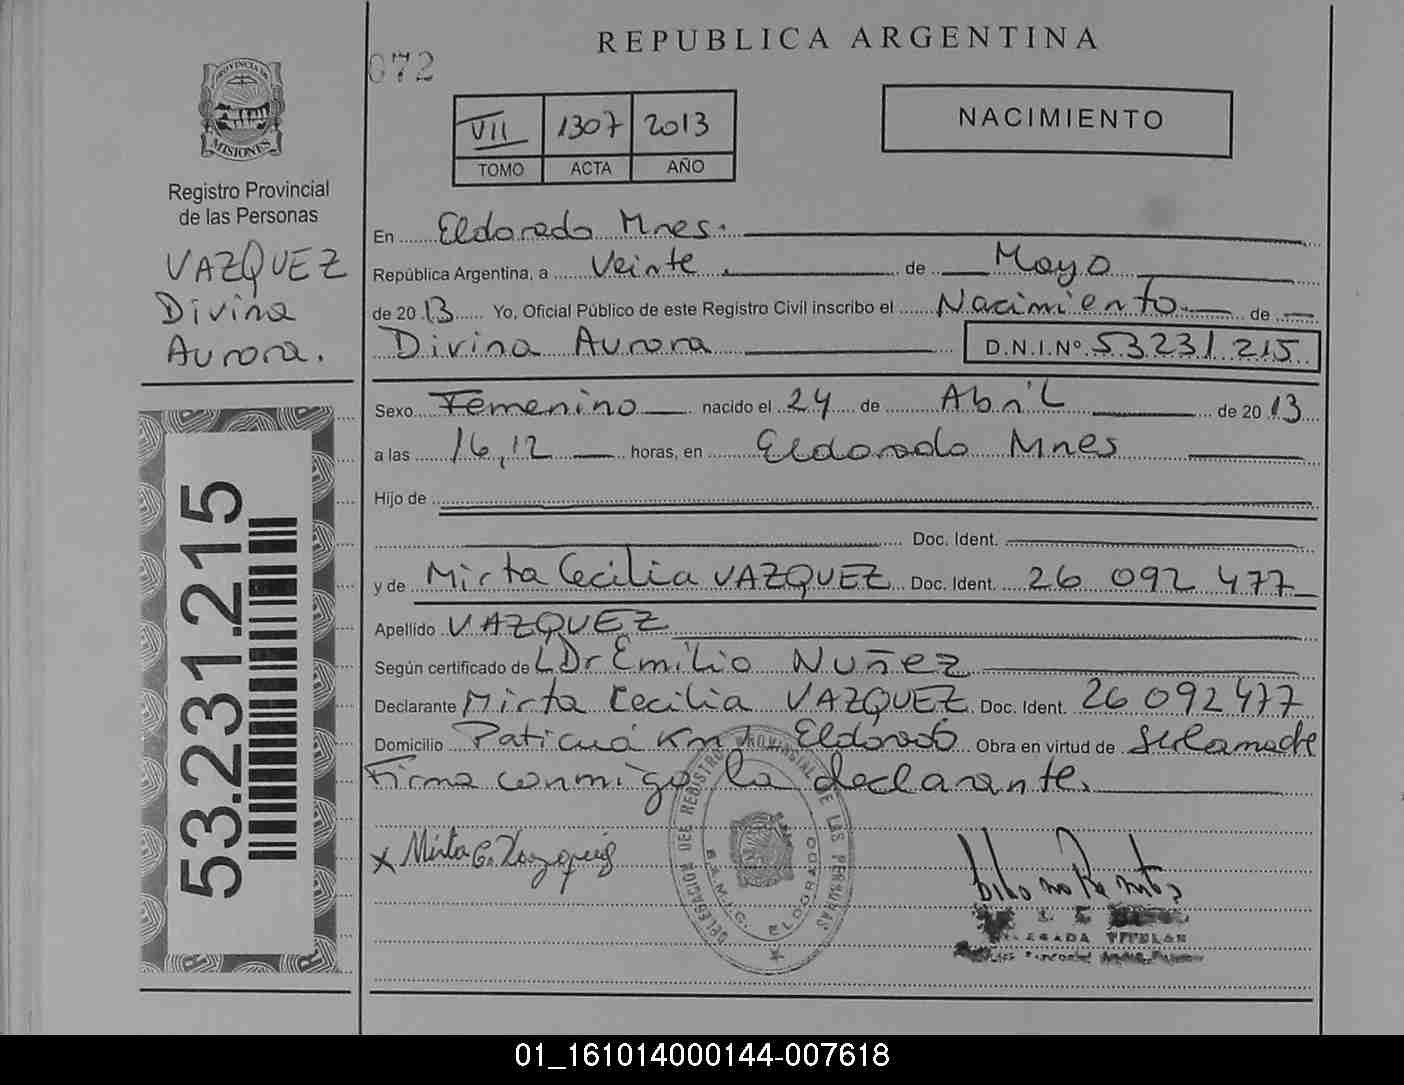 REPUBLICA ARGENTINA
072
PROVINCIA DE
MISIONES
Registro Provincial
de las Personas
VAZQUEZ
Divina
Aurora.
53.231.215
VII 1307 2013
TOMO ACTA AÑO
NACIMIENTO
En Eldorado Mnes.
República Argentina, a Veinte de Mayo
de 2013 Yo, Oficial Público de este Registro Civil inscribo el Nacimiento de
Divina Aurora D.N.I.Nº 53231215
Sexo Femenino nacido el 24 de Abril de 2013
a las 16,12 horas, en Eldorado Mnes
Hijo de
Doc. Ident.
y de Mirta Cecilia VAZQUEZ Doc. Ident. 26 092 477
Apellido VAZQUEZ
Según certificado de Dr Emilio Nuñez
Declarante Mirta Cecilia VAZQUEZ Doc. Ident. 26 092 477
Domicilio Km 1 Eldorado Obra en virtud de
Firma conmigo la declarante.
x Mirta C.
DELEGACION DEL REGISTRO PROVINCIAL DE LAS PERSONAS
ELDORADO
TITULAR
01_161014000144-007618